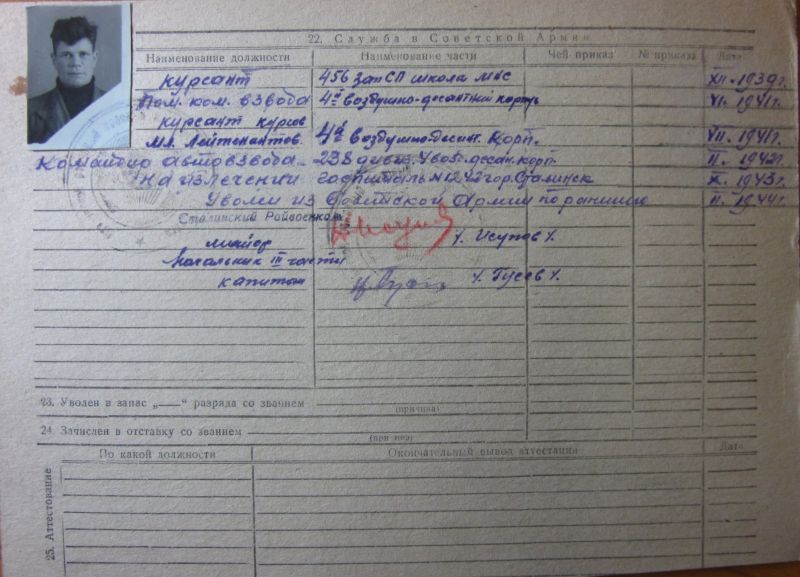 22. Служба в Советской Армии
Наименование должности Наименование части Чей приказ № приказа Дата
Курсант 456 зап СП школа МНС XII. 1939г.
Пом. ком. взвода 4й воздушно-десантный корпус VI. 1941г.
курсант курсов
мл. Лейтенантов 4й воздушно-десант. Корп. VII. 1941г.
Командир автовзвода 238 дивиз. возд. десан. корп. II. 1942г.
на излечении госпиталь № 1242 гор. Сталинск X. 1943г.
Уволен из Советской Армии по ранению II. 1944г.
Сталинский Райвоенком
майор /. Исупов /.
Начальник III части
капитан /. Гусев /.
23. Уволен в запас „ “ разряда со званием
(причина)
24. Зачислен в отставку со званием
25. Аттестование
По какой должности Окончательный вывод аттестации Дата